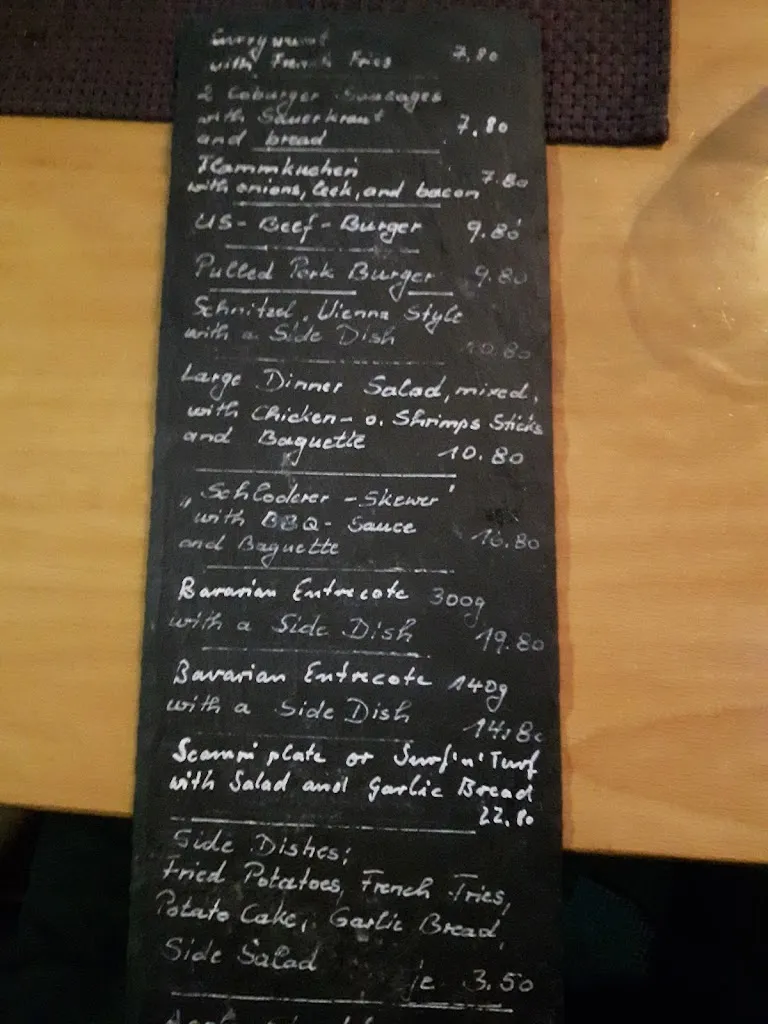 Currywurst
with French Fries 7.80
2 Coburger Sausages
with Sauerkraut
and bread 7.80
Flammkuchen 7.80
with onions, leek, and bacon
US-Beef-Burger 9.80
Pulled Pork Burger 9.80
Schnitzel, Vienna Style
with a Side Dish 10.80
Large Dinner Salad, mixed,
with Chicken- o. Shrimps Sticks
and Baguette 10.80
„Schloderer-Skewer"
with BBQ-Sauce
and Baguette 16.80
Bavarian Entrecote 300g
with a Side Dish 19.80
Bavarian Entrecote 140g
with a Side Dish 14,80
Scampi plate or Surf'n'Turf
with Salad and Garlic Bread
22.80
Side Dishes;
Fried Potatoes, French Fries,
Potato Cake, Garlic Bread,
Side Salad je 3.50